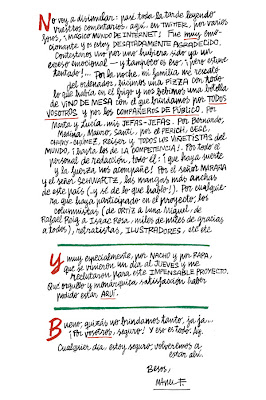 No voy a disimular: pasé toda la tarde leyendo
vuestros comentarios, aquí, en TWITTER, por varios
foros, ¡MÁGICO MUNDO DE INTERNET! Fue muy emo-
cionante y os estoy DISPARATADAMENTE AGRADECIDO.
Contestaros uno por uno hubiera sido ya un
exceso emocional — y tampoco es eso, ¡pero estuve
tentado!... Por la noche, mi familia me rescató
del ordenador, hicimos una PIZZA con todo
lo que había en el frigo y nos bebimos una botella
de VINO DE MESA con el que brindamos por TODOS
VOSOTROS y por los COMPAÑEROS DE PÚBLICO. Por
Marta y Lucía, mis JEFAS-JEFAS. Por Bernardo,
Medina, Mauro, Santi, por el PERICH, CESC,
CHUMY-CHÚMEZ, REISER y TODOS LOS VIÑETISTAS DEL
MUNDO, ¡hasta los de LA COMPETENCIA!. Por todo el
personal de redacción, todo él: ¡que haya suerte
y la fuerza nos acompañe! Por el señor
y el señor las mangas más anchas
de este país (¡y sé de lo que hablo!). Por cualquie-
ra que haya participado en el proyecto, los
columnistas (de ORTIZ a Luna Miguel, de
Rafael Reig a Isaac Rosa, miles de miles de gracias
a todos), retratistas, ILUSTRADORES, etc etc
Y muy especialmente, por NACHO y por PAPA,
que se vinieron un día al JUEVES y me
reclutaron para este IMPENSABLE PROYECTO.
Qué orgullo y monárquica satisfacción haber
podido estar AQUÍ.
Bueno, quizás no brindamos tanto, ja ja...
¡Por vosotros, seguro! Y eso es todo.
Cualquier día, estoy seguro, volveremos a
estar ahí.
Besos,
MANEL F.